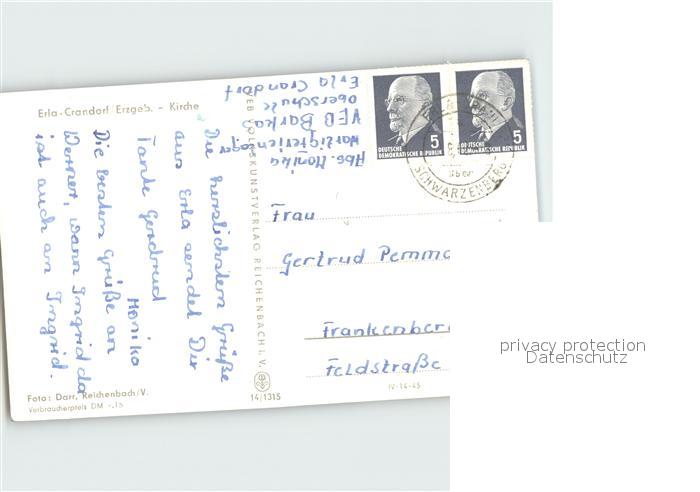 Erla-Crandorf/Erzgeb. - Kirche
Die herzlichsten Grüße
aus Erla sendet Dir
Tante Gerdrud
Monika
Die besten Grüße an
Werner, wann Ingrid da
ist auch an Ingrid.
Foto: Darr, Reichenbach/V.
Verbraucherpreis DM -,15
VEB VOLKSKUNSTVERLAG REICHENBACH I. V.
14/1315
Abs. Monika
VEB Barkas
Oberschule
Erla Crandorf
5
DEUTSCHE
DEMOKRATISCHE REPUBLIK
5
DEUTSCHE
DEMOKRATISCHE REPUBLIK
SCHWARZENBERG
Frau
Gertrud Pemm
Frankenber
Feldstraße
IV-14-45
privacy protection
Datenschutz